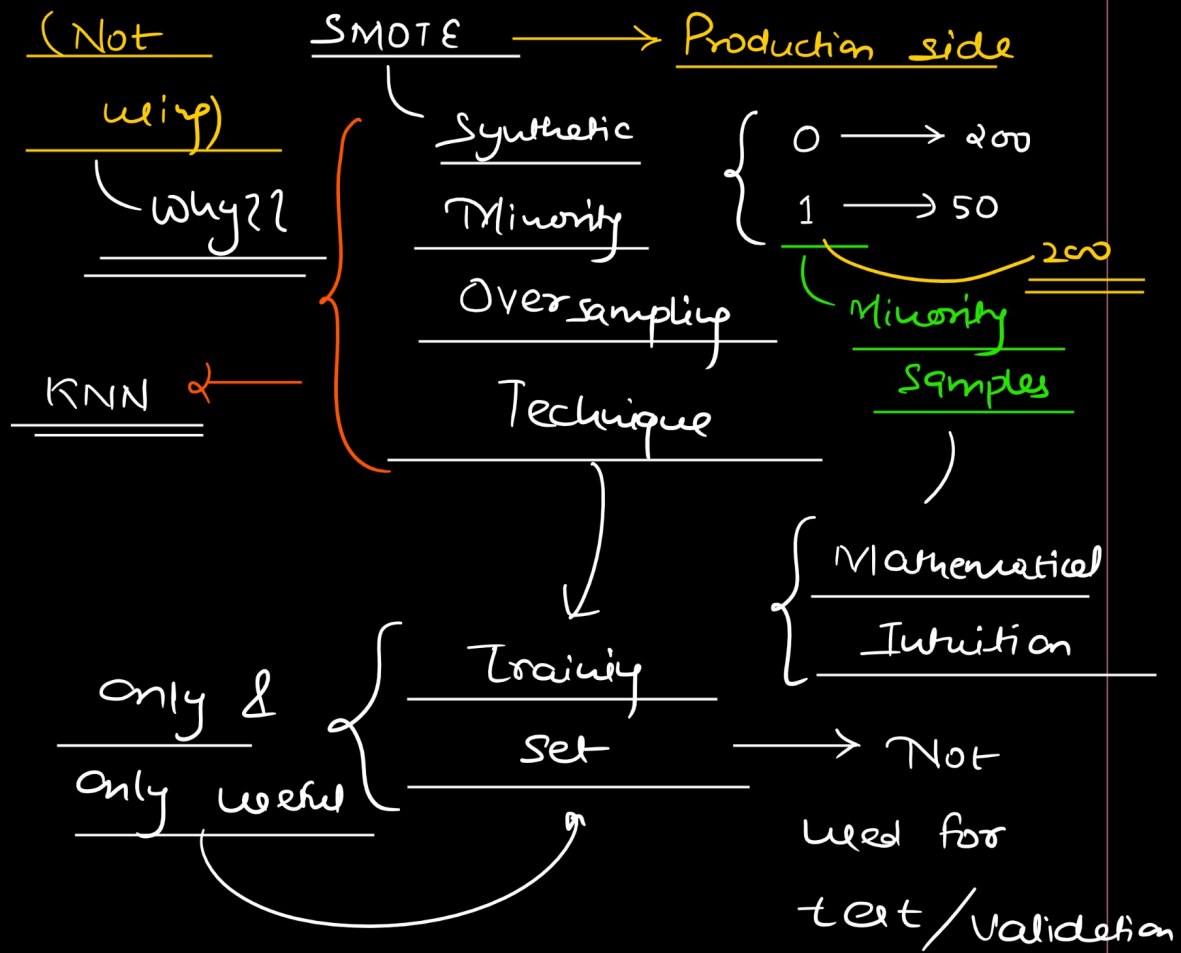 (Not
using)
Why??
KNN
SMOTE → Production side
Synthetic
Minority
Oversampling
Technique
0 → 200
1 → 50
200
Minority
Samples
Mathematical
Intuition
Only &
Only useful
Training
Set → Not
used for
test/validation